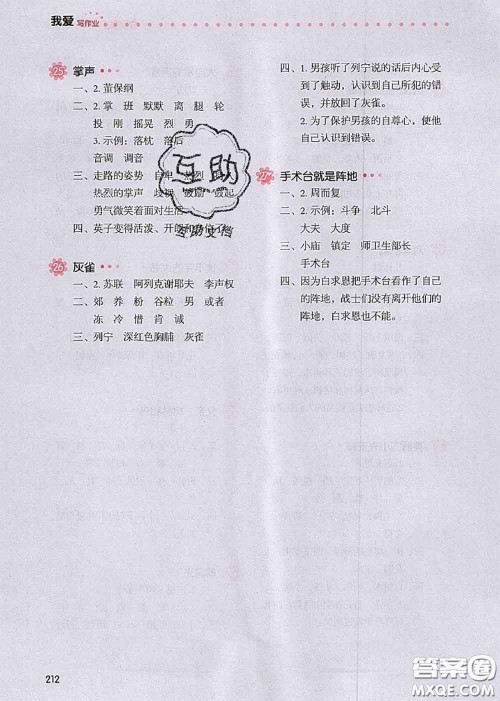 我爱 写作业
25 掌声
一、2. 董保纲
二、2. 掌 班 默默 离 腿 轮
投 刚 摇晃 烈 勇
3. 示例：落枕 落后
音调 调音
三、走路的姿势 自卑 热烈
热烈的掌声 歧视 鼓励 鼓起
勇气微笑着面对生活
四、英子变得活泼、开朗和热情了。
26 灰雀
一、2. 苏联 阿列克谢耶夫 李声权
二、郊 养 粉 谷粒 男 或者
冻 冷 惜 肯 诚
三、列宁 深红色胸脯 灰雀
四、1. 男孩听了列宁说的话后内心受
到了触动，认识到自己所犯的错
误，并放回了灰雀。
2. 为了保护男孩的自尊心，使他
自己认识到错误。
27 手术台就是阵地
一、2. 周而复
二、2. 示例：斗争 北斗
大夫 大度
三、小庙 镇定 师卫生部长
手术台
四、因为白求恩把手术台看作了自己
的阵地，战士们没有离开他们的
阵地，白求恩也不能。
互助
互助文档
212
答案圈
MXQE.COM